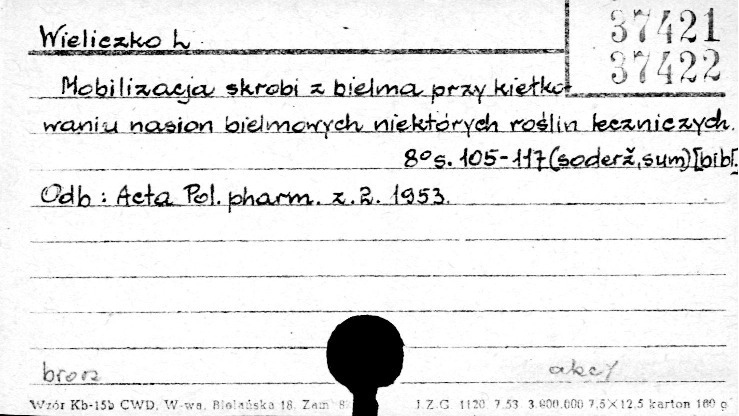 Wieliczko L
37421
37422
Mobilizacja skrobi z bielma przy kiełko-
waniu nasion bielmowych niektórych roślin leczniczych.
8° s. 105-117 (soderž, sum) [bibl.]
Odb : Acta Pol. pharm. z. 2. 1953.
brosz akcy
Wzór Kb-15b CWD, W-wa, Bielańska 18, Zam 8 J.Z.G. 1120 7.53 3.900.000 7,5×12,5 karton 160 g